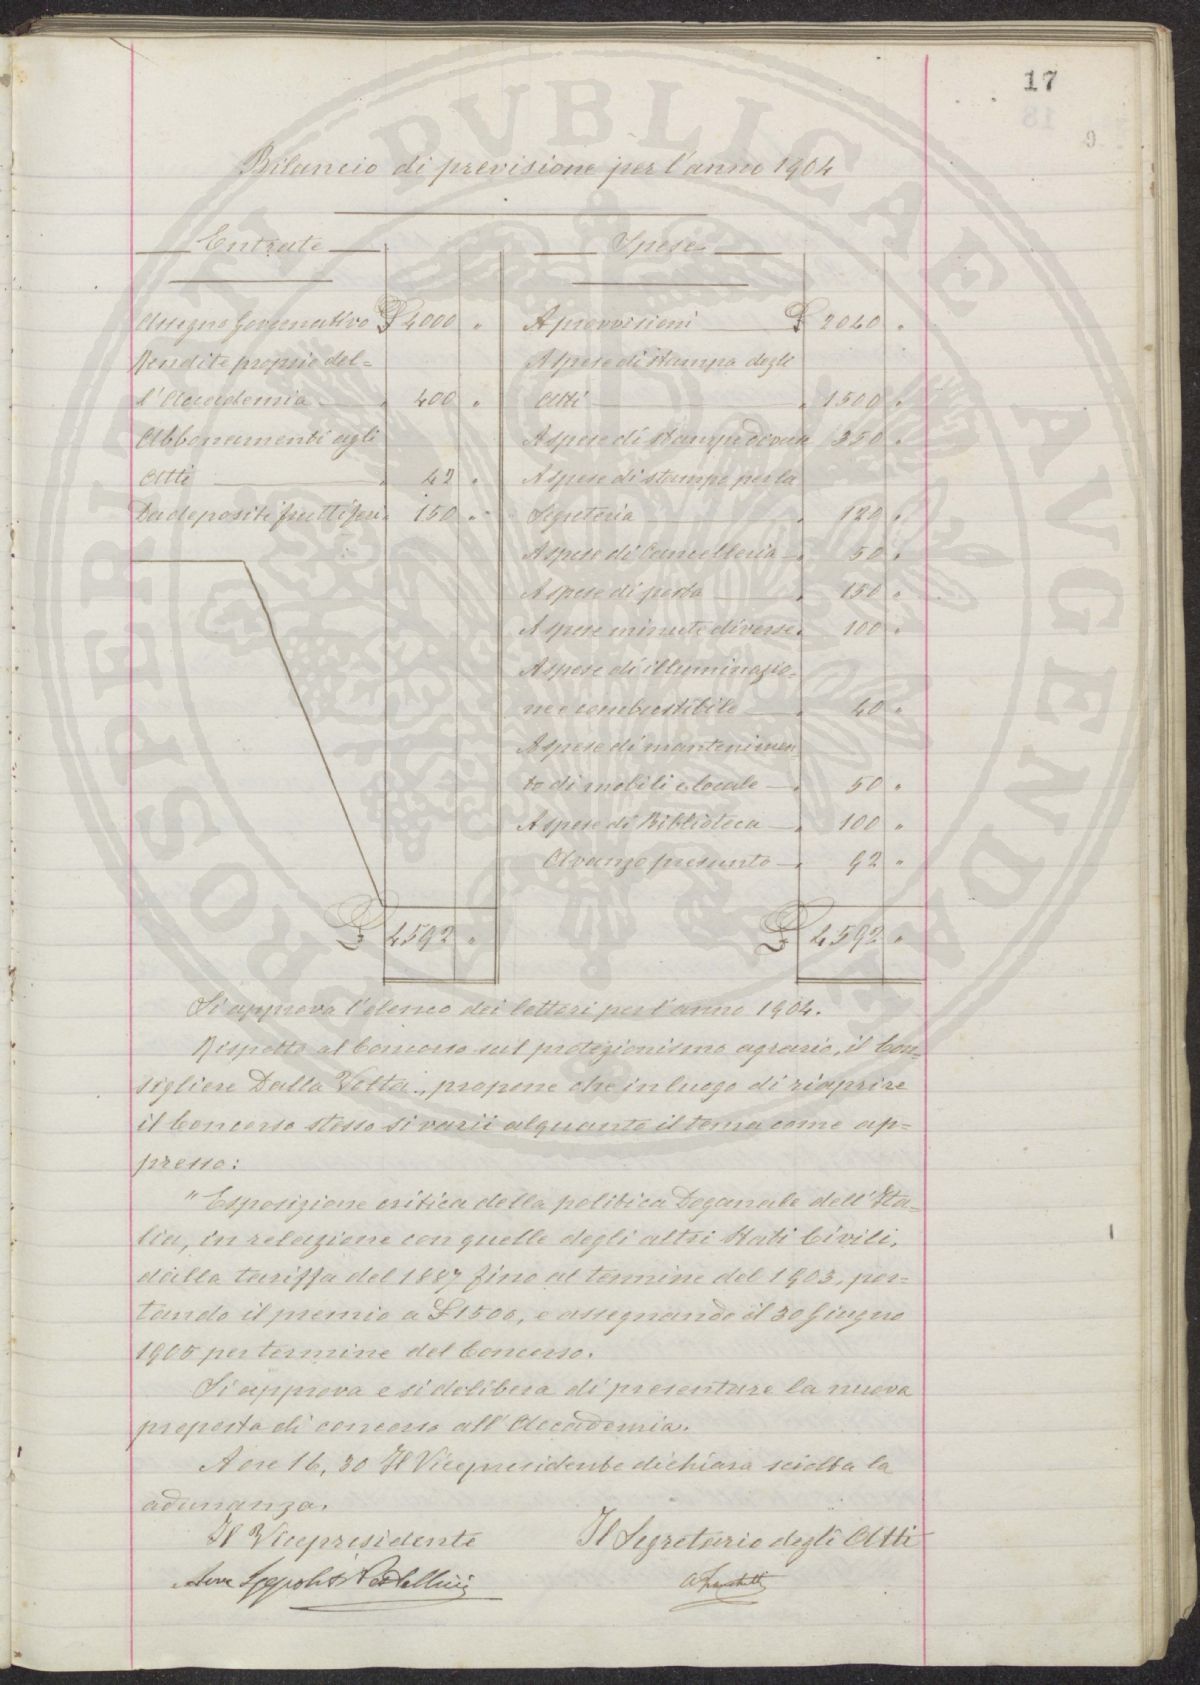 17
Bilancio di previsione per l'anno 1904
Entrate
Assegno Governativo £ 4000 "
Rendite proprie del=
l'Accademia " 400 "
Abbonamenti agli
Atti " 42 "
Da depositi fruttiferi " 150 "
£ 4592 "
Spese
A provvisioni £ 2040 "
A spese di stampa degli
Atti " 1500 "
A spese di stampe diverse 350 "
A spese di stampe per la
Segreteria " 120 "
A spese di Cancelleria " 50 "
A spese di posta " 150 "
A spese minute diverse " 100 "
A spese di illuminazio=
ne e combustibile " 40 "
A spese di mantenimen
to di mobili e locale " 50 "
A spese di Biblioteca " 100 "
Avanzo presunto " 92 "
£ 4592 "
Si approva l'elenco dei lettori per l'anno 1904.
Rispetto al Concorso sul protezionismo agrario, il Con=
sigliere Dalla Volta, propone che in luogo di riaprire
il Concorso stesso si varii alquanto il tema come ap=
presso:
"Esposizione critica della politica Doganale dell'Ita=
lia, in relazione con quelle degli altri Stati Civili,
dalla tariffa del 1887 fino al termine del 1903, por=
tando il premio a £1500, e assegnando il 30 Giugno
1905 per termine del Concorso.
Si approva e si delibera di presentare la nuova
proposta di concorso all'Accademia.
A ore 16,30 Il Vicepresidente dichiara sciolta la
adunanza.
Il Vicepresidente
Il Segretario degli Atti
PROSPERITATI PVBLICAE AVGENDAE